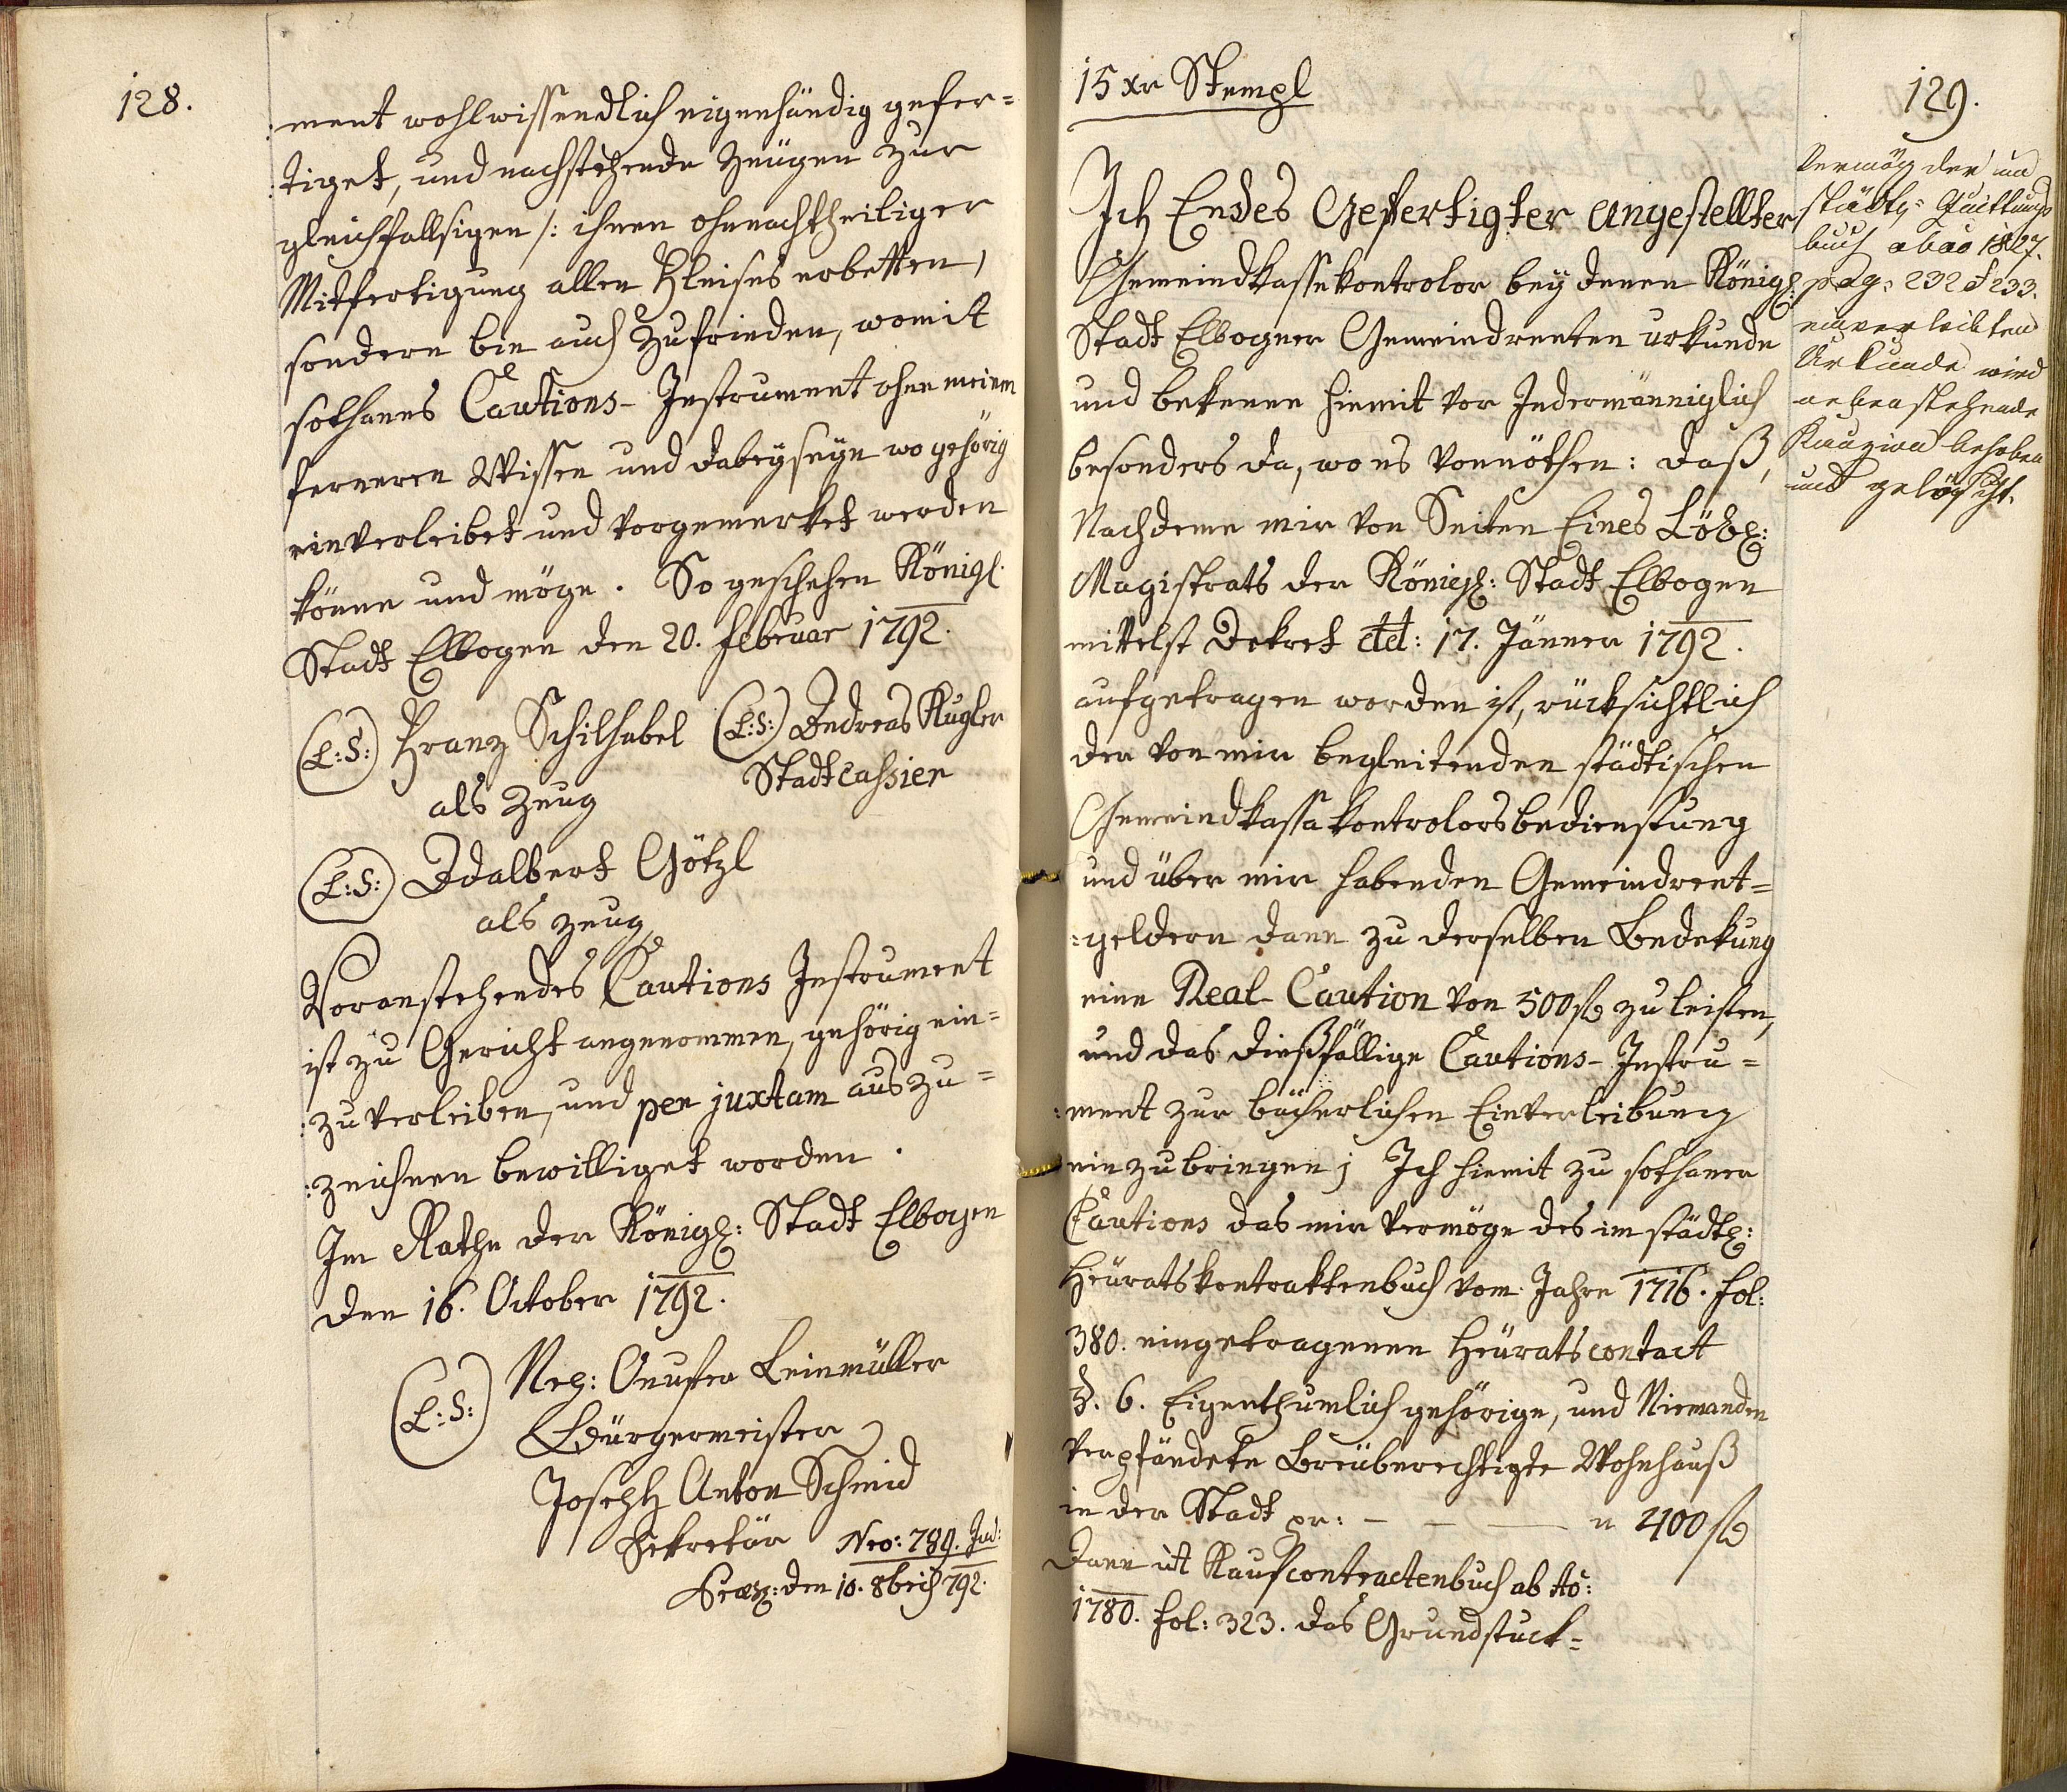 128.
ment wohlwissendlich eigenhändig gefer=
:tiget, und nachstehende Zeügen zur
gleichfallsigen /: ihnen ohnnachtheiliger
Mitfertigung allen Fleißes erbetten,
sondern bin auch zufrieden, womit
sothanes Cautions-Instrument ohne meinem
ferneren Wissen und dabeyseyn wo gehörig
einverleibet und vorgemerket werden
könne und möge. So geschehen Königl.
Stadt Elbogen den 20. Februar 1792.
(L:S:) Franz Schilhabel (L:S:) Andreas Kugler
als Zeug Stadtcassier
(L:S:) Adalbert Götzl
als Zeug
Voranstehendes Cautions Instrument
ist zu Gericht angenommen, gehörig ein=
:zuverleiben, und per juxtam auszu=
:zeichnen bewilliget worden.
Im Rathe der Königl: Stadt Elbogen
den 16. October 1792.
(L:S:) Leinmüller
Bürgermeister
Joseph Anton Schmid
Sekretär Nro: 789. Jud:
den 10. 8bris 792.
15 xr Stempl
129.
Ich Endes Gefertigter Angestellter
Gemeindkassekontrolor bey denen Königl:
Stadt Elbogner Gemeindrenten urkunde
und bekenne hiemit vor Jedermänniglich
besonders da, wo es vonnöthen: daß,
Nachdeme mir von Seiten Eines Löbl:
Magistrats der Königl: Stadt Elbogen
mittelst Dekret dd: 17. Jänner 1792.
aufgetragen worden ist, rücksichtlich
der von mir begleitenden städtischen
Gemeindkassakontrolorsbedienstung
und über mir habenden Gemeindrent=
:geldern dann zu derselben Bedekung
eine Real-Caution von 500 f zu leisten,
und das dießfällige Cautions-Instru=
:ment zur bücherlichen Einverleibung
einzubringen; Ich hiemit zu sothaner
Cautions das mir vermöge des im städtl:
Heüratskontraktenbuch vom Jahre 1776. fol:
380. eingetragenen Heüratscontact
§. 6. Eigenthumlich gehörige, und Niemanden
verpfändete Breüberechtigte Wohnhauß
in der Stadt pr: — — — " 400 f
Dann ut Kaufcontractenbuch ab Ao:
1780. fol: 323. das Grundstuck=
Vermög der im
städt: Quittungs
buch ab ao 1827.
pag: 232 & 233.
einverleibten
Urkunde wird
nebenstehende
Kauzion behoben
und gelöscht.